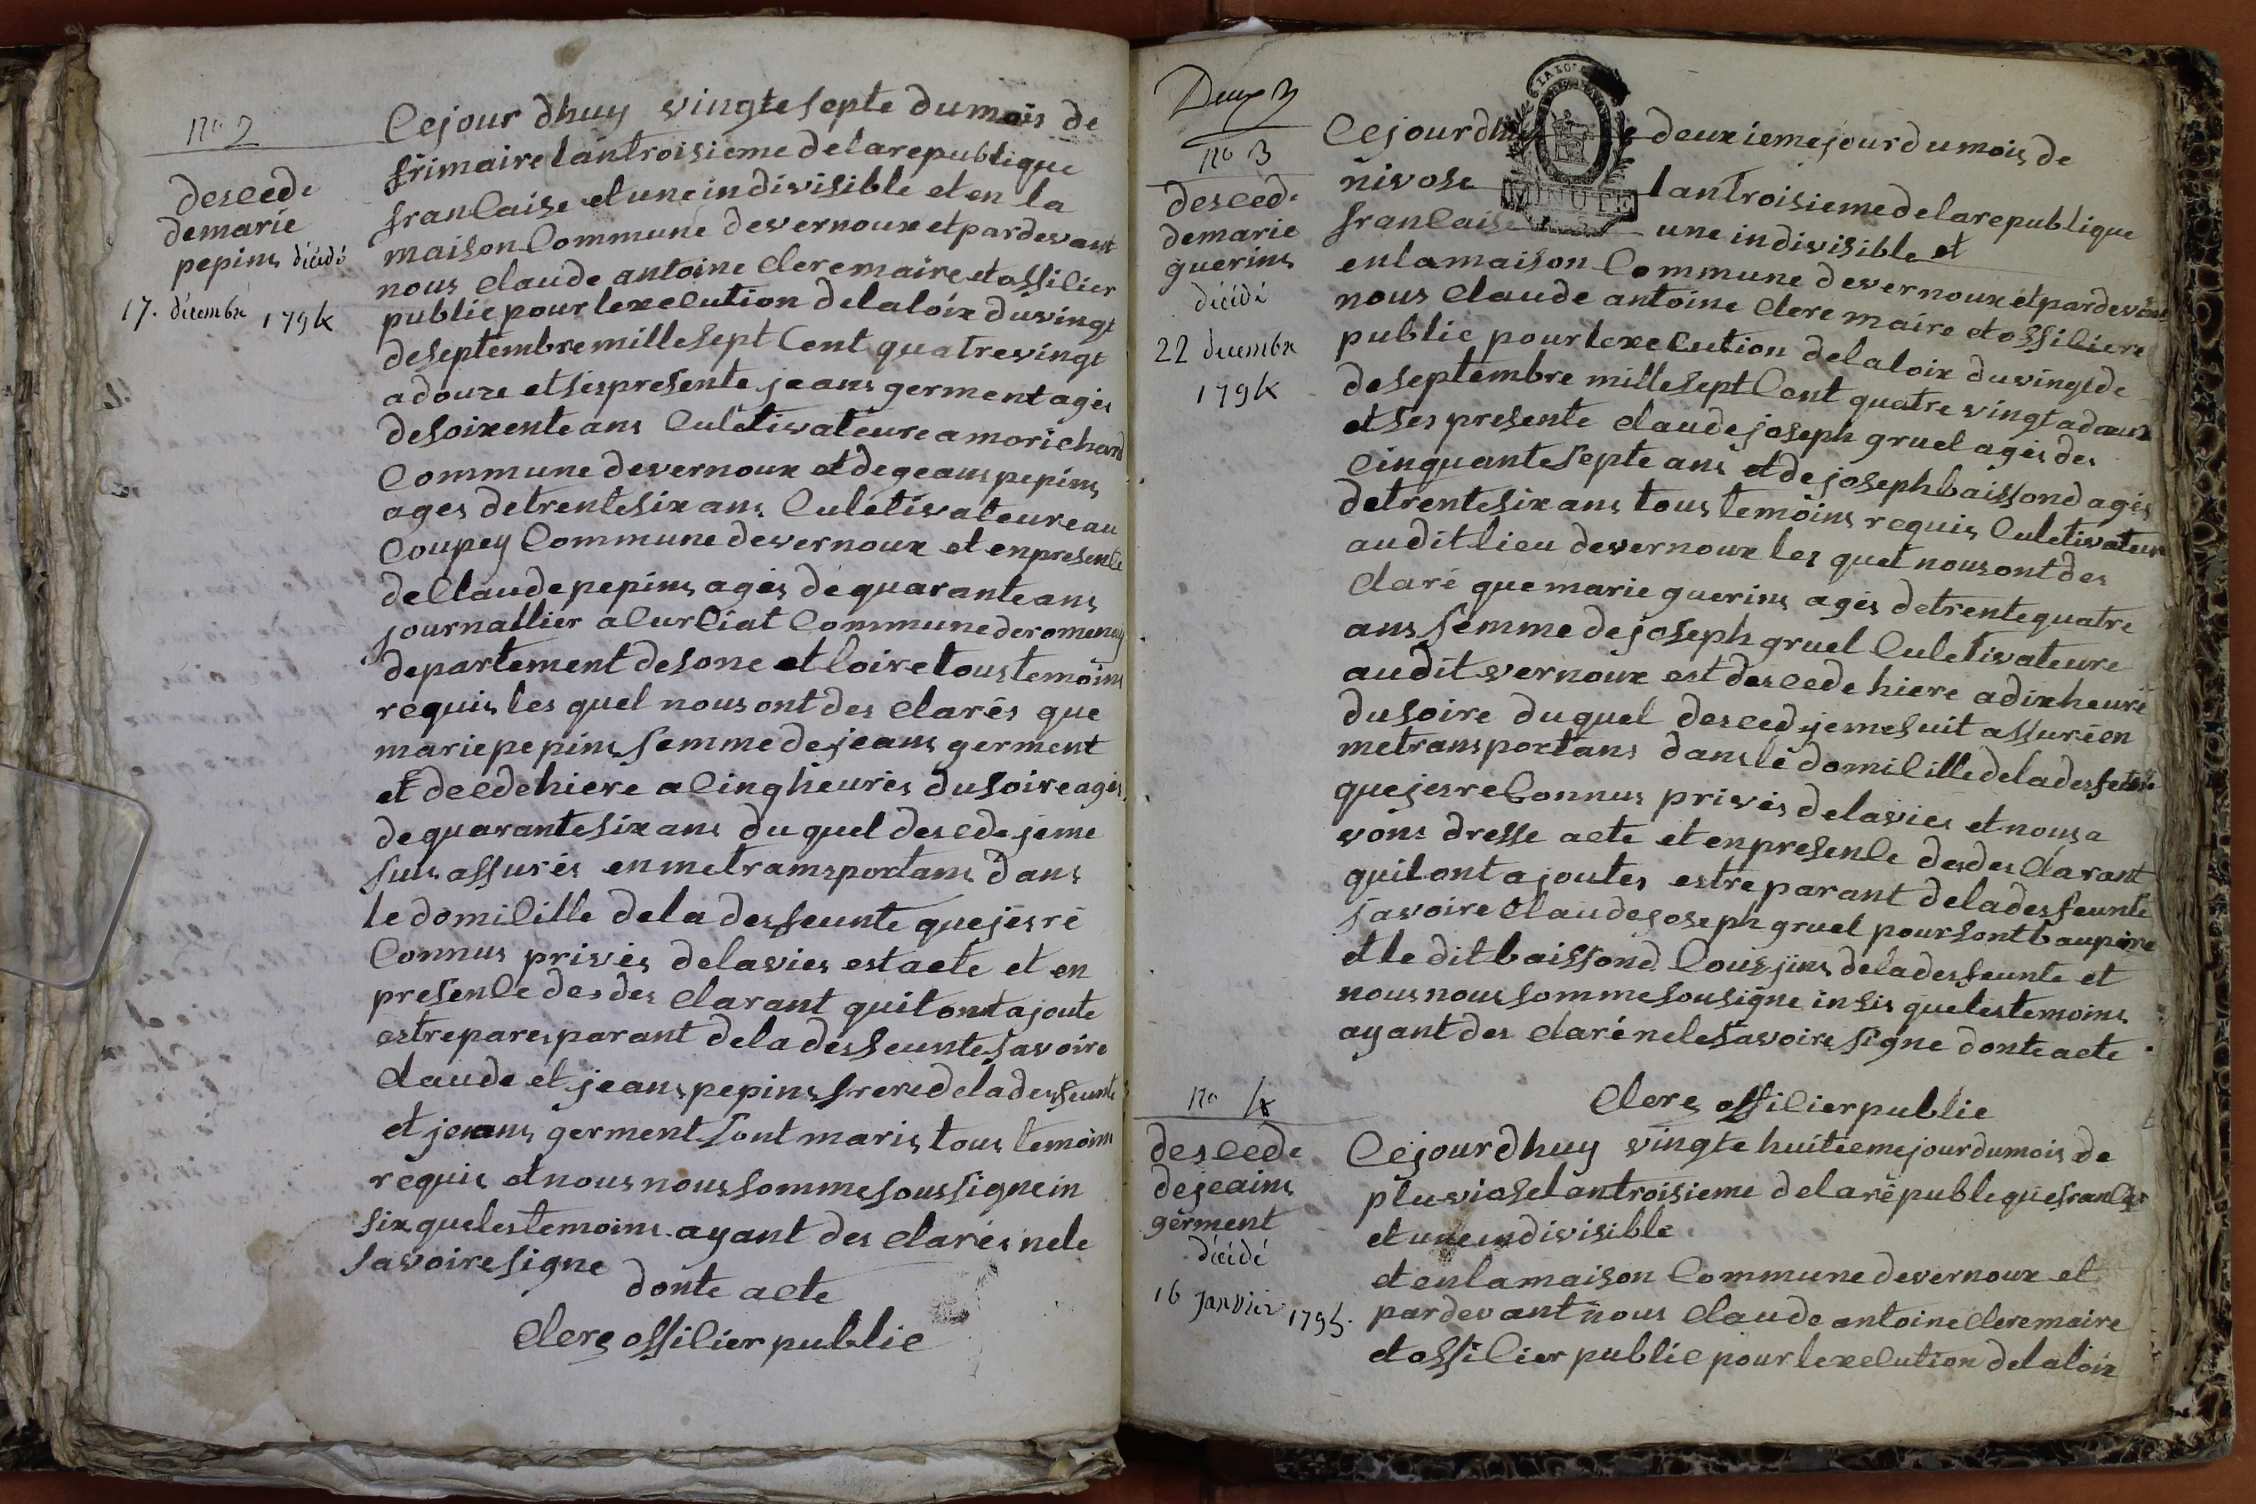 no 2
desced.
de marie
pepins décédé
17. décembre 1794
Cejour dhuy vingte septe du mois de
frimaire lan troisieme de la republique
francaise et une in divisible et en la
maison Commune de vernoux et par devant
nous claude antoine clere maire et offilier
public pour lexecution de la loix du vingt
de septembre mille sept Cent quatre vingt
a douze et ses presente jeans germent agés
de soixente ans Culetivateure a morichard
Commune de vernoux et de geans pepins
ages de trente six ans Culetivateure au
Coupey Commune de vernoux et en presente
de Claude pepins agés de quarante ans
journallier a Curciat Commune de romenay
departement de sone et loire tous temoins
requis les quel nous ont des clarés que
marie pepins femme de jeans germent
et decede hiere a Cinq heurés du soire agés
de quarante six ans du quel descede je me
suis assurés en me transportans dans
le domicille de la desfeunte que jes ré
Connus privés de la vies est acte et en
presence des des clarant quil ont ajoute
estre pares parant de la desfeunte savoire
claude et jeans pepins frere de la desfeunte
et jeans germent sont maris tous temoins
requis et nous nous somme sous signe in
six que les temoins ayant des clarés nele
savoire signe
donte acte
Clere offilier public
Deux
no 3
desced.
de marie
guerins
décédé
22 décembre
1794
MINUTE
Cejour dhuy deuxieme jour du mois de
nivose lan troisieme de la republique
francaise une indivisible et
en la maison Commune de vernoux et par devant
nous claude antoine clere maire et offiliere
public pour lexecution de la loix du vingt de
de septembre mille sept Cent quatre vingt a doeux
et ses presente claude joseph gruel agés des
Cinquante septe ans et de joseph baissond agés
de trente six ans tous temoins requis Culetivateur
au dit lieu de vernoux les quel nous ont des
claré que marie guerins agés de trente quatre
ans femme de joseph gruel Culetivateure
au dit vernoux est descede hiere a dix heuré
du soire du quel desced je me suit assuré en
me transportans dans le domicille de la desfeunte
que jes re Connus privés de la vies et nous a
vons dresse acte et en presence des des clarant
quil ont ajoutes estre parant de la desfeunte
savoire claude joseph gruel pour sont baupere
et le dit baissond Cousjins de la desfeunte et
nous nous somme sou signe in sis que les temoins
ayant des claré nele savoire signe donte acte
Clere offilier public
no 4
descede
de jeains
germent
décédé
16 janvier 1795.
Cejour dhuy vingte huitieme jour du mois de
pluviose lan troisieme de la republeque
et une indivisible
et en la maison Commune de vernoux et
par devant nous claude antoine clere maire
et offilier public pour lexecution de la loix